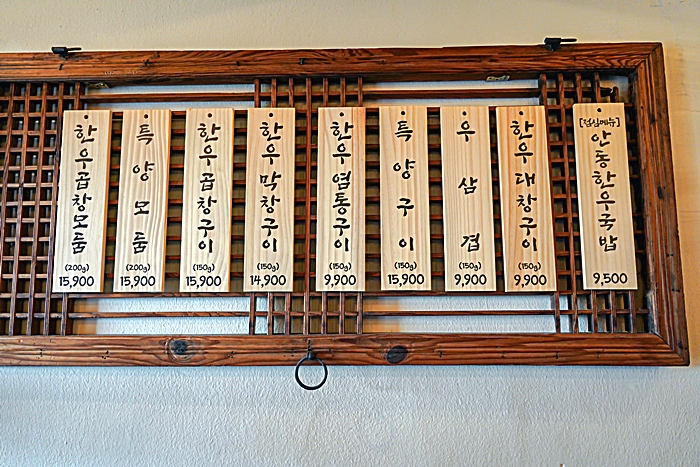 한우곱창모둠
(200g)
15,900
특양모둠
(200g)
15,900
한우곱창구이
(150g)
15,900
한우막창구이
(150g)
14,900
한우염통구이
(150g)
9,900
특양구이
(150g)
15,900
우삼겹
(150g)
9,900
한우대창구이
(150g)
9,900
[점심메뉴]
안동한우국밥
9,500